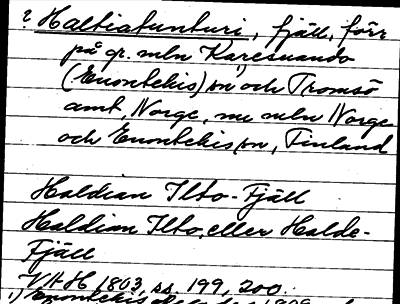 ? Haltiatunturi, fjäll, förr
på gr. mln Karesuando
(Enontekis) sn och Tromsö
amt, Norge, nu mln Norge
och Enontekis sn, Finland
Haldian Ilto-Fjäll
Haldian Ilto, eller Halde-
Fjäll
VAH 1803, ss. 199, 200.
1) Enontekis